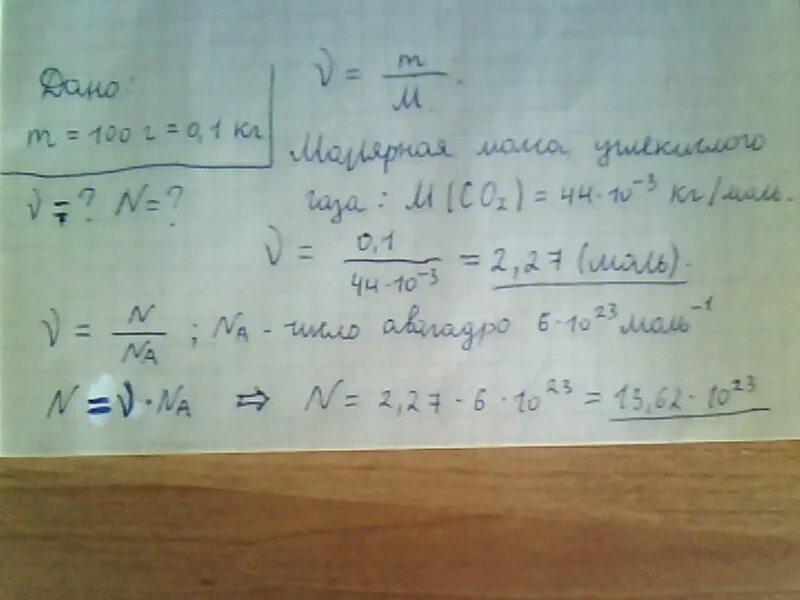 Дано:
m = 100 г = 0,1 кг
ν = ? N = ?
ν = m/M.
Молярная масса углекислого
газа: M(CO₂) = 44·10⁻³ кг/моль.
ν = 0,1/44·10⁻³ = 2,27 (моль).
ν = N/NA ; NA - число авагадро 6·10²³ моль⁻¹
N = ν·NA ⇒ N = 2,27·6·10²³ = 13,62·10²³